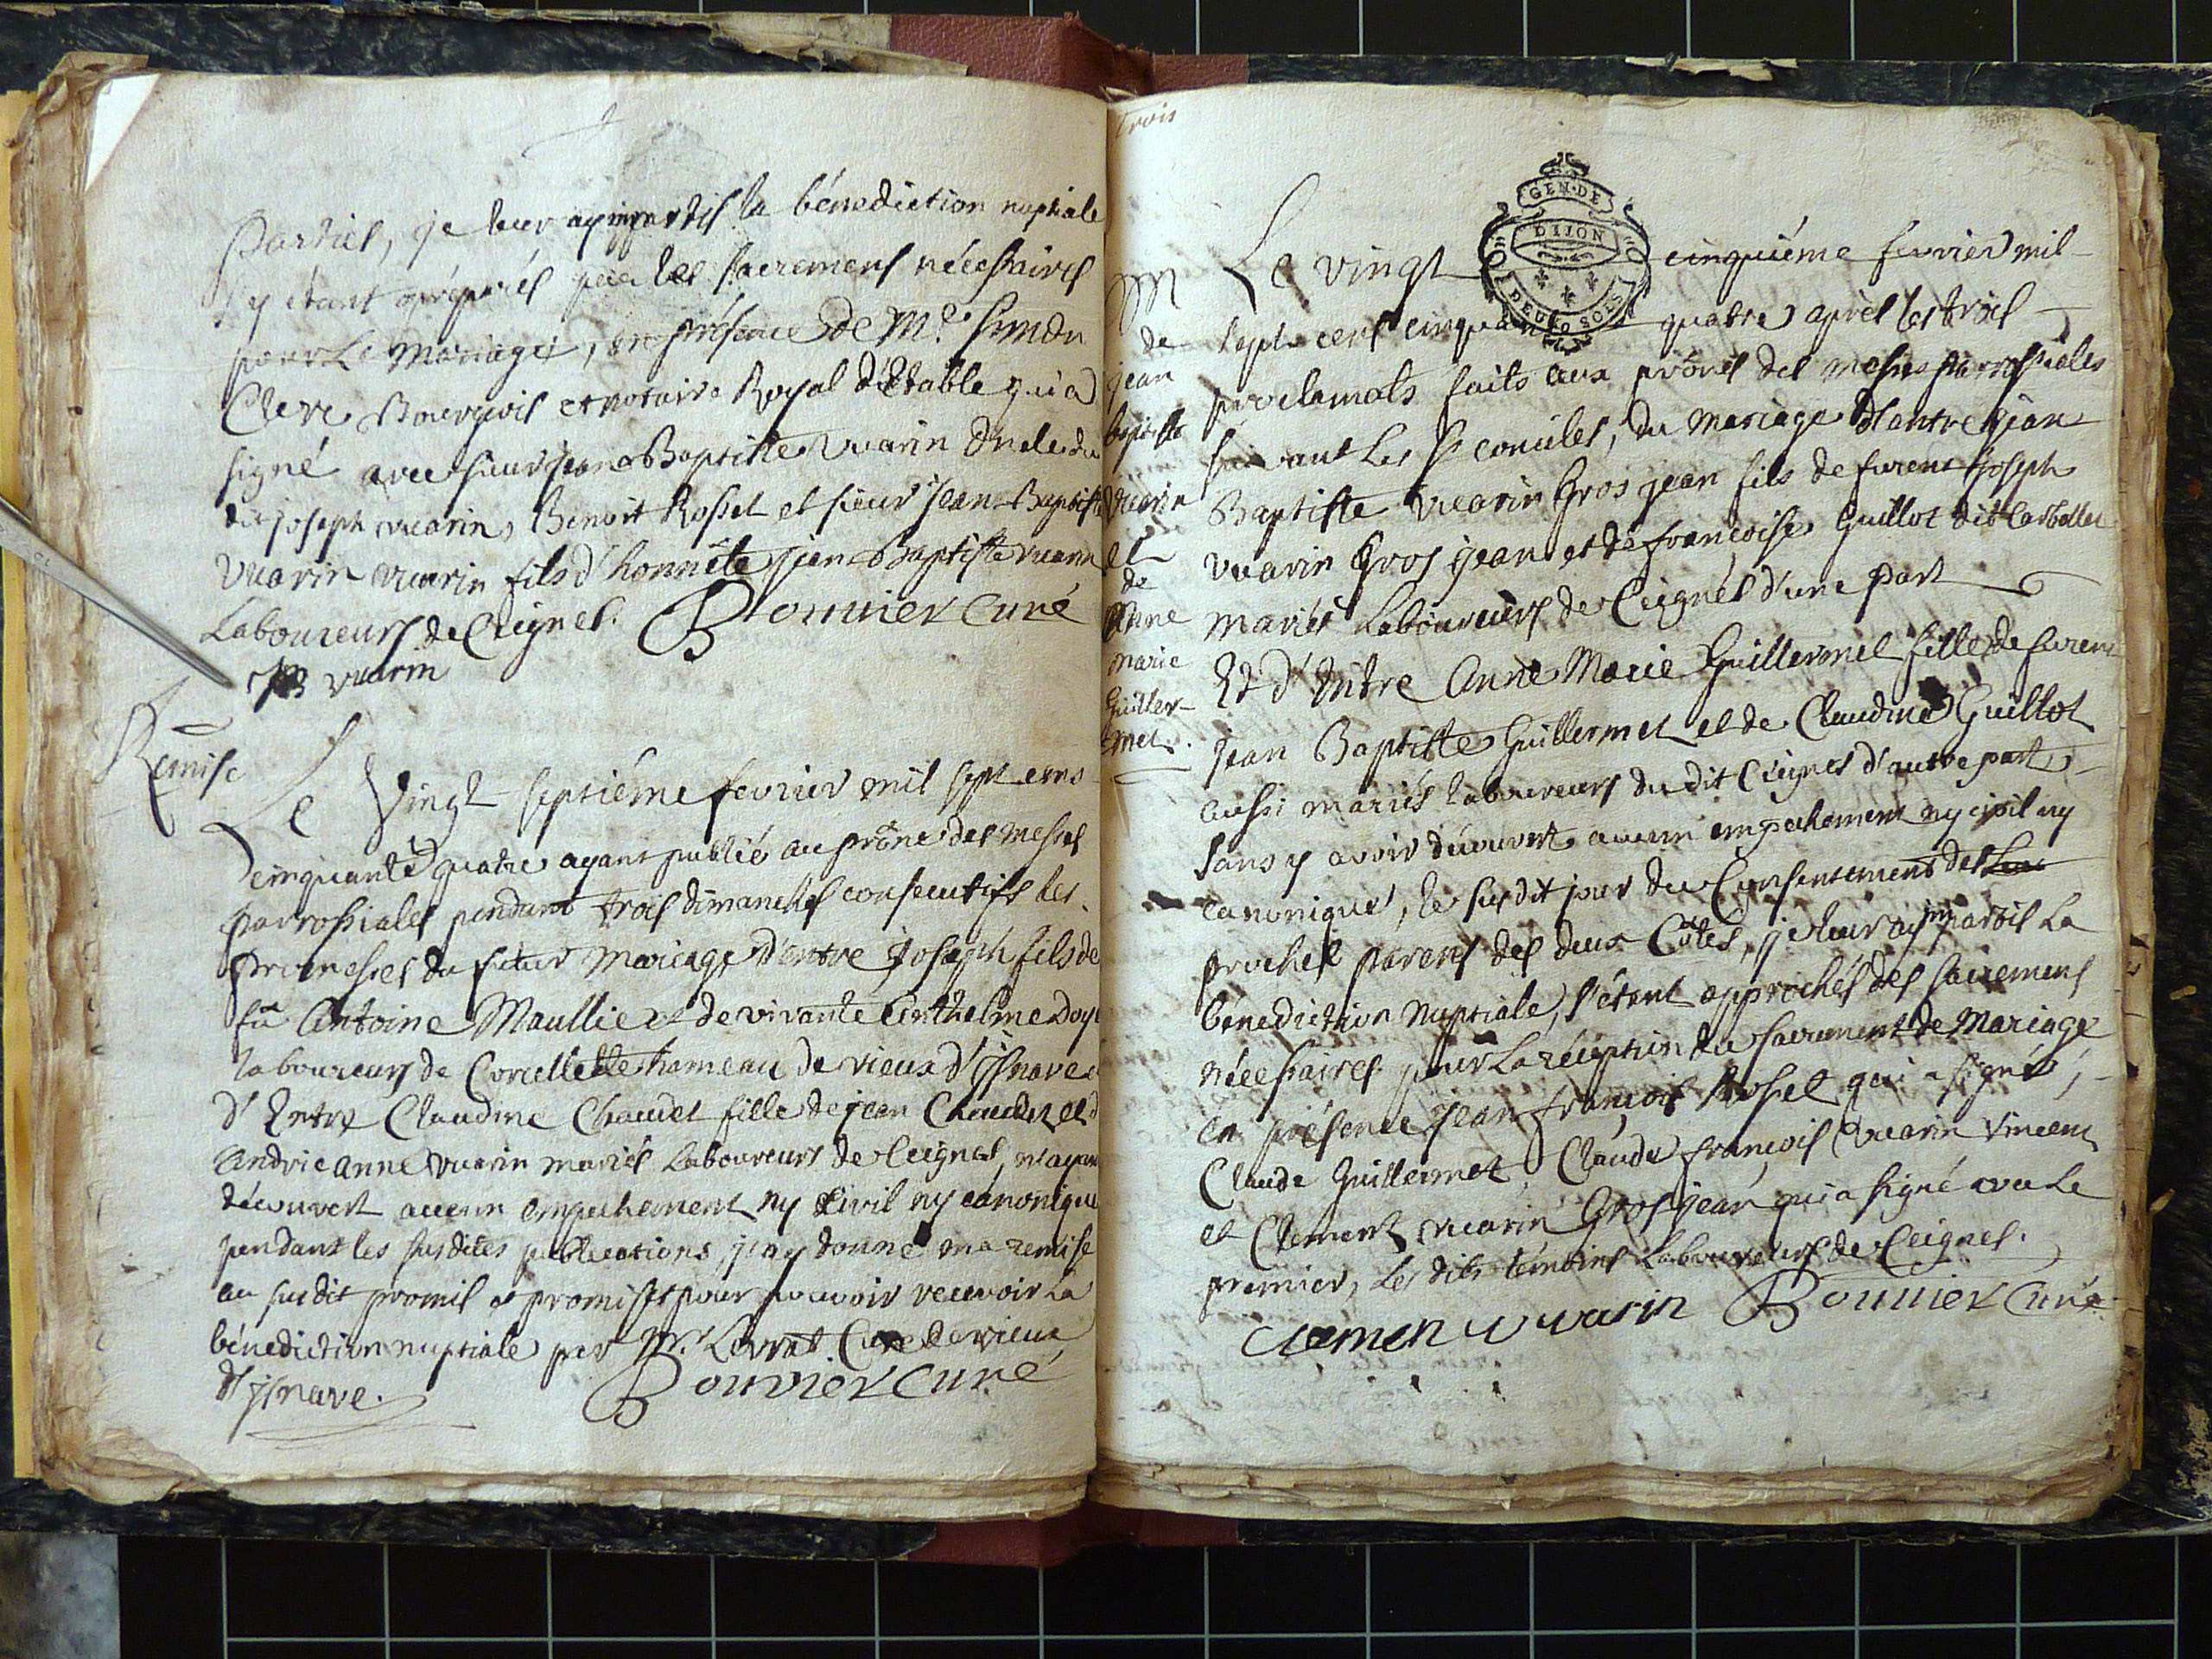 Parties, je leur ay impartis la bénediction nuptiale
s'y étant préparés par les sacremens nécessaires
pour Le Mariage, en présence de Me.
Clerc Bourgeois et notaire Royal d'Etable qui a
signé avec sieur jean Baptiste Vuarin
joseph vuarin, Benoit Rosset et sieur jean Baptiste
Vuarin vuarin fils d'honnête jean Baptiste vuarin
Laboureurs de Ceignes. Bouvier Curé
JB vuarin
Remise
Le Vingt septiéme fevrier mil sept cens
cinquante quatre ayant publié au prône des messes
parrossiales pendant trois dimanches consecutifs les
promesses du futur Mariage d'entre Joseph fils de
fû Antoine Maullier de vivante Anthelme
laboureurs de Corcellette hameau de vieux d'jsnave
d'Entre Claudine Chaudet fille de jean Chaudet et
andrieanne vuarin mariés Laboureurs de Ceignes, n'ayant
découvert aucun empechement ny civil ny canonique
pendant les susdites publications, j'ay donné ma remise
au susdit promis et promise pour pouvoir recevoir La
bénediction nuptiale par Mr. Levrat Curé de vieux
d'jsnave. Bouvier Curé
trois
GEN. DE
DIJON
DEUX SOLS
M
de
jean
baptiste
vuarin
et
de
Anne
marie
Guiller-
met.
Le vingt cinquiéme fevrier mil
sept cens cinquante quatre après les trois
proclamats faits aux prônes des messes parrossiales
suivant les st conciles, du Mariage d'entre jean
Baptiste vuarin Gros jean fils de furent joseph
vuarin Gros jean et de françoise Guillot dit
mariés Laboureurs de Ceignes d'une part
Et d'Entre Anne Marie Guillermet fille de furent
jean Baptiste Guillermet et de Claudine Guillot
aussi mariés laboureurs du dit Ceignes d'autre part
sans y avoir découvert aucun empechement ny civil ny
canonique, le susdit jour du Consentement des
proches parens des deux Côtés, je leur ay impartis La
bénediction Nuptiale, s'étant approchés des sacremens
nécessaires pour La réception du sacrement de Mariage
en présence jean françois Rosset qui a signé,
Claude Guillermet, Claude françois vuarin Vincent
et Clement vuarin Gros jean qui a signé avec Le
premier, Les dits témoins Laboureurs de Ceignes.
clemen vuarin Bouvier Curé